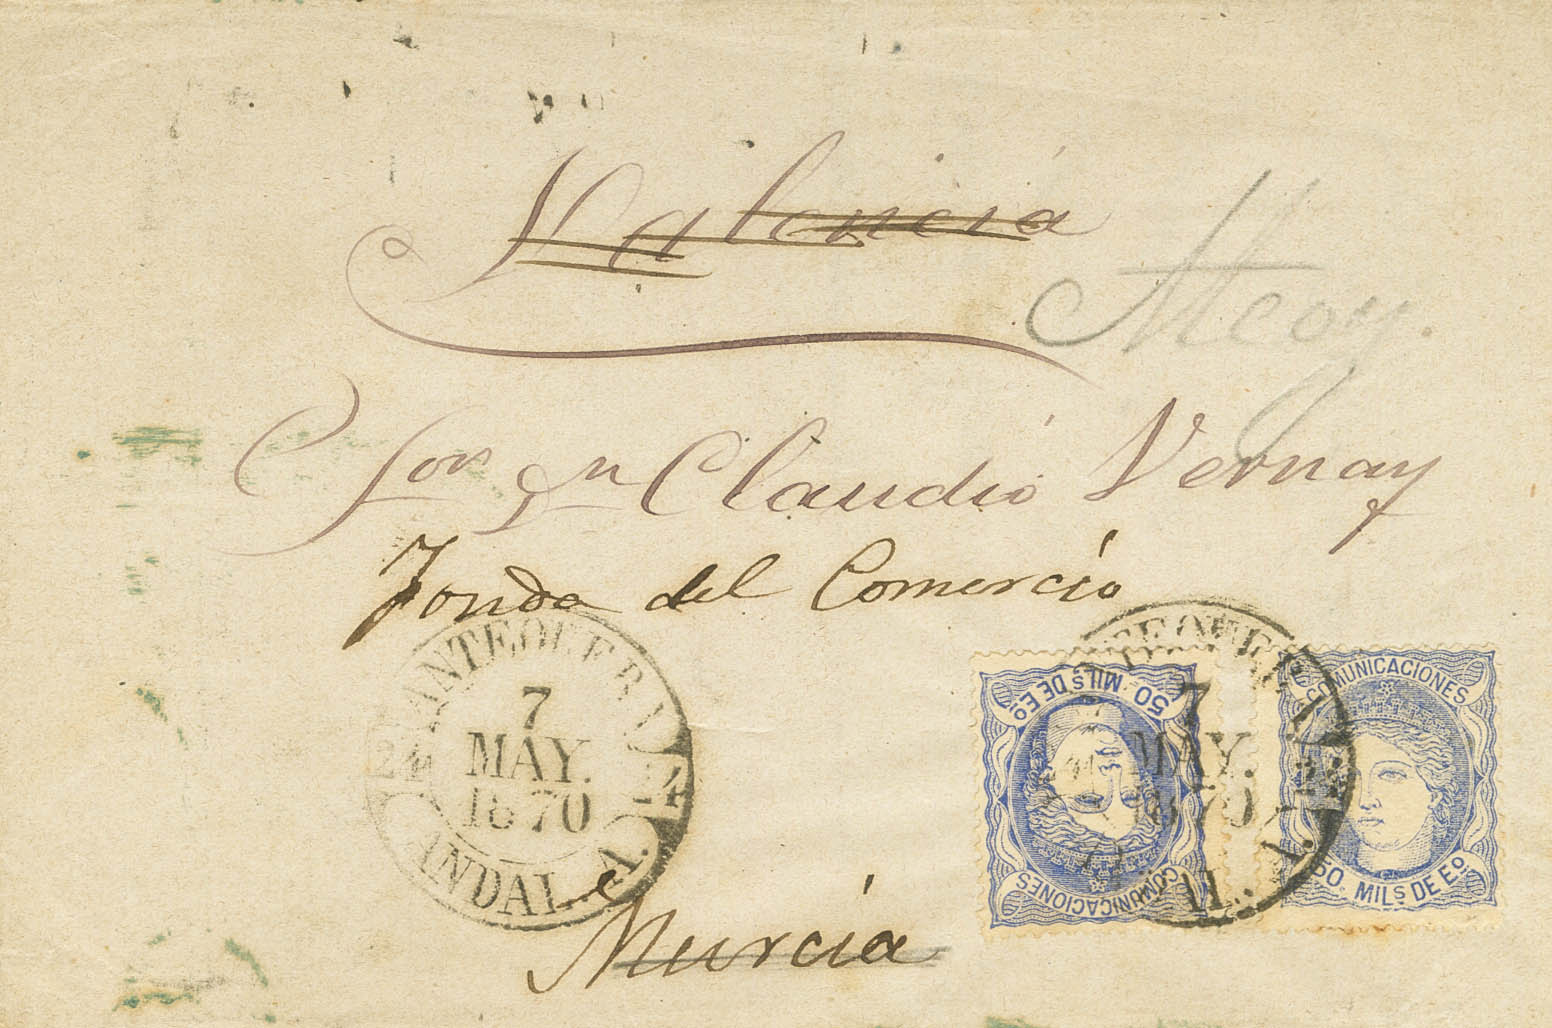 Valencia
Alcoy.
Sor Dn Claudio Vernay
Fonda del Comercio
ANTEQUERA
7
MAY.
1870
ANDAL. A.
50 MILS DE Eo
COMUNICACIONES
7
MAY.
1870
COMUNICACIONES
50. MILS DE Eo
Murcia